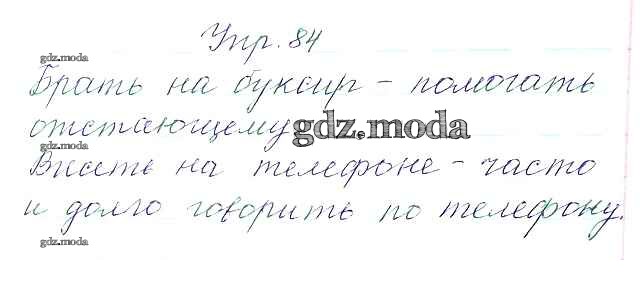 Упр. 84
gdz.moda
Брать на буксир - помогать
отстающему.
gdz.moda
gdz.moda
Висеть на телефоне - часто
и долго говорить по телефону.
gdz.moda